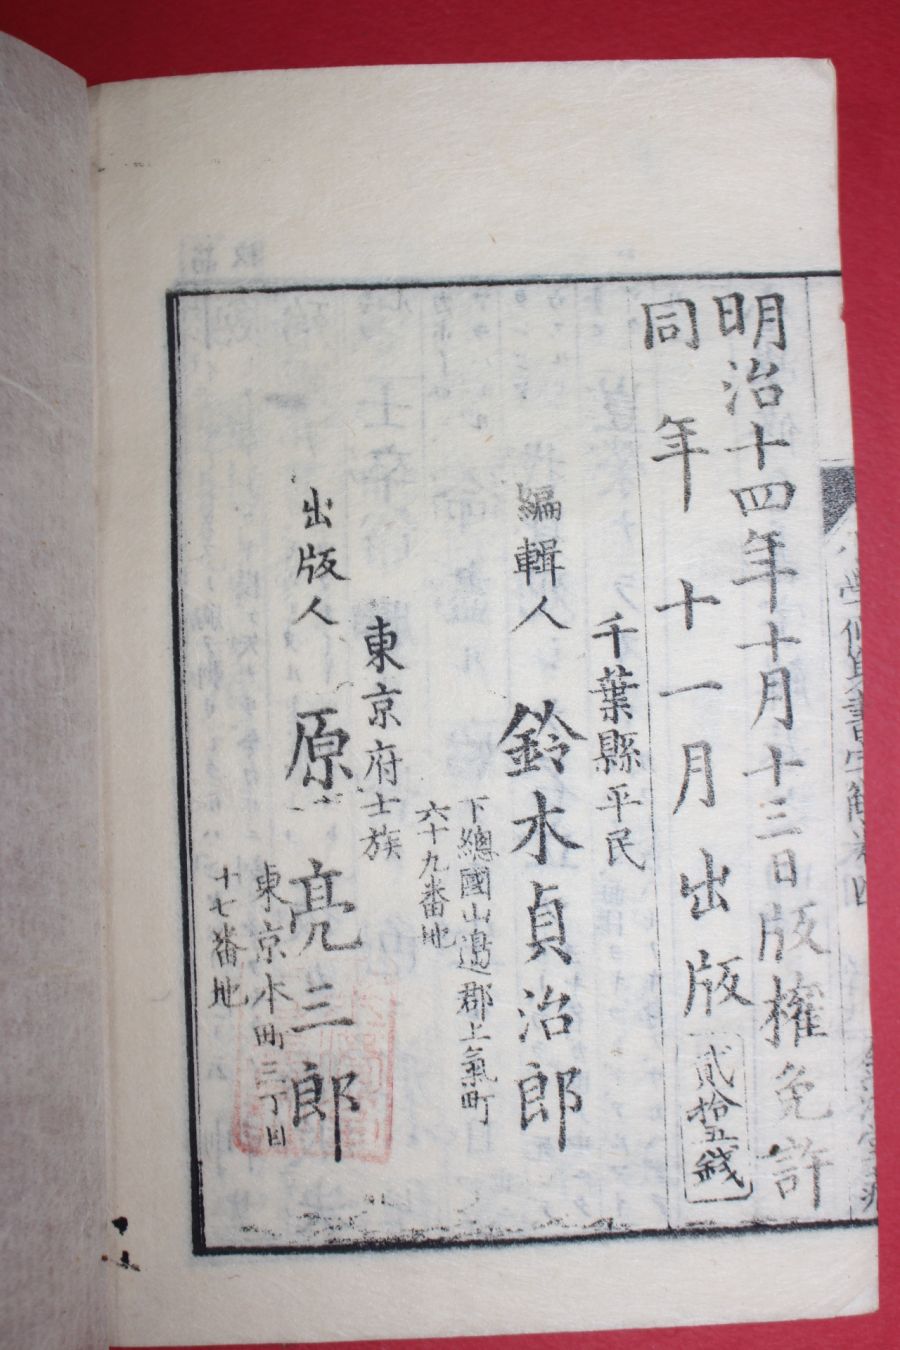 明治十四年十月十三日版權免許
同年十一月出版
貳拾五錢
千葉縣平民
編輯人 鈴木貞治郎
下總國山邊郡土氣町
六十九番地
東京府士族
出版人 原亮三郎
東京本町三丁目
十七番地